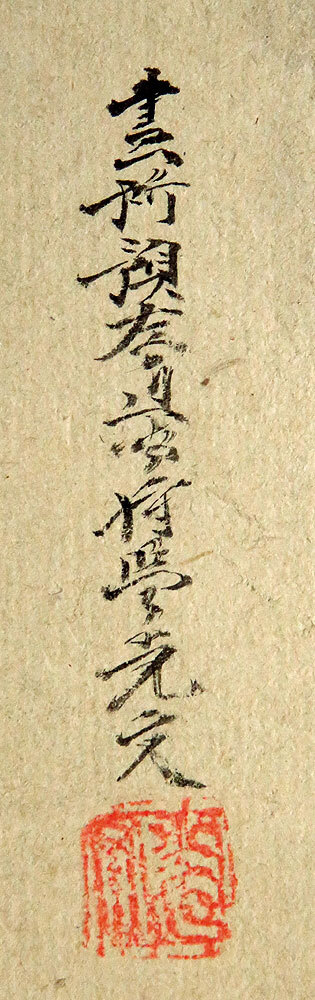 畫所預左近衛将監光文